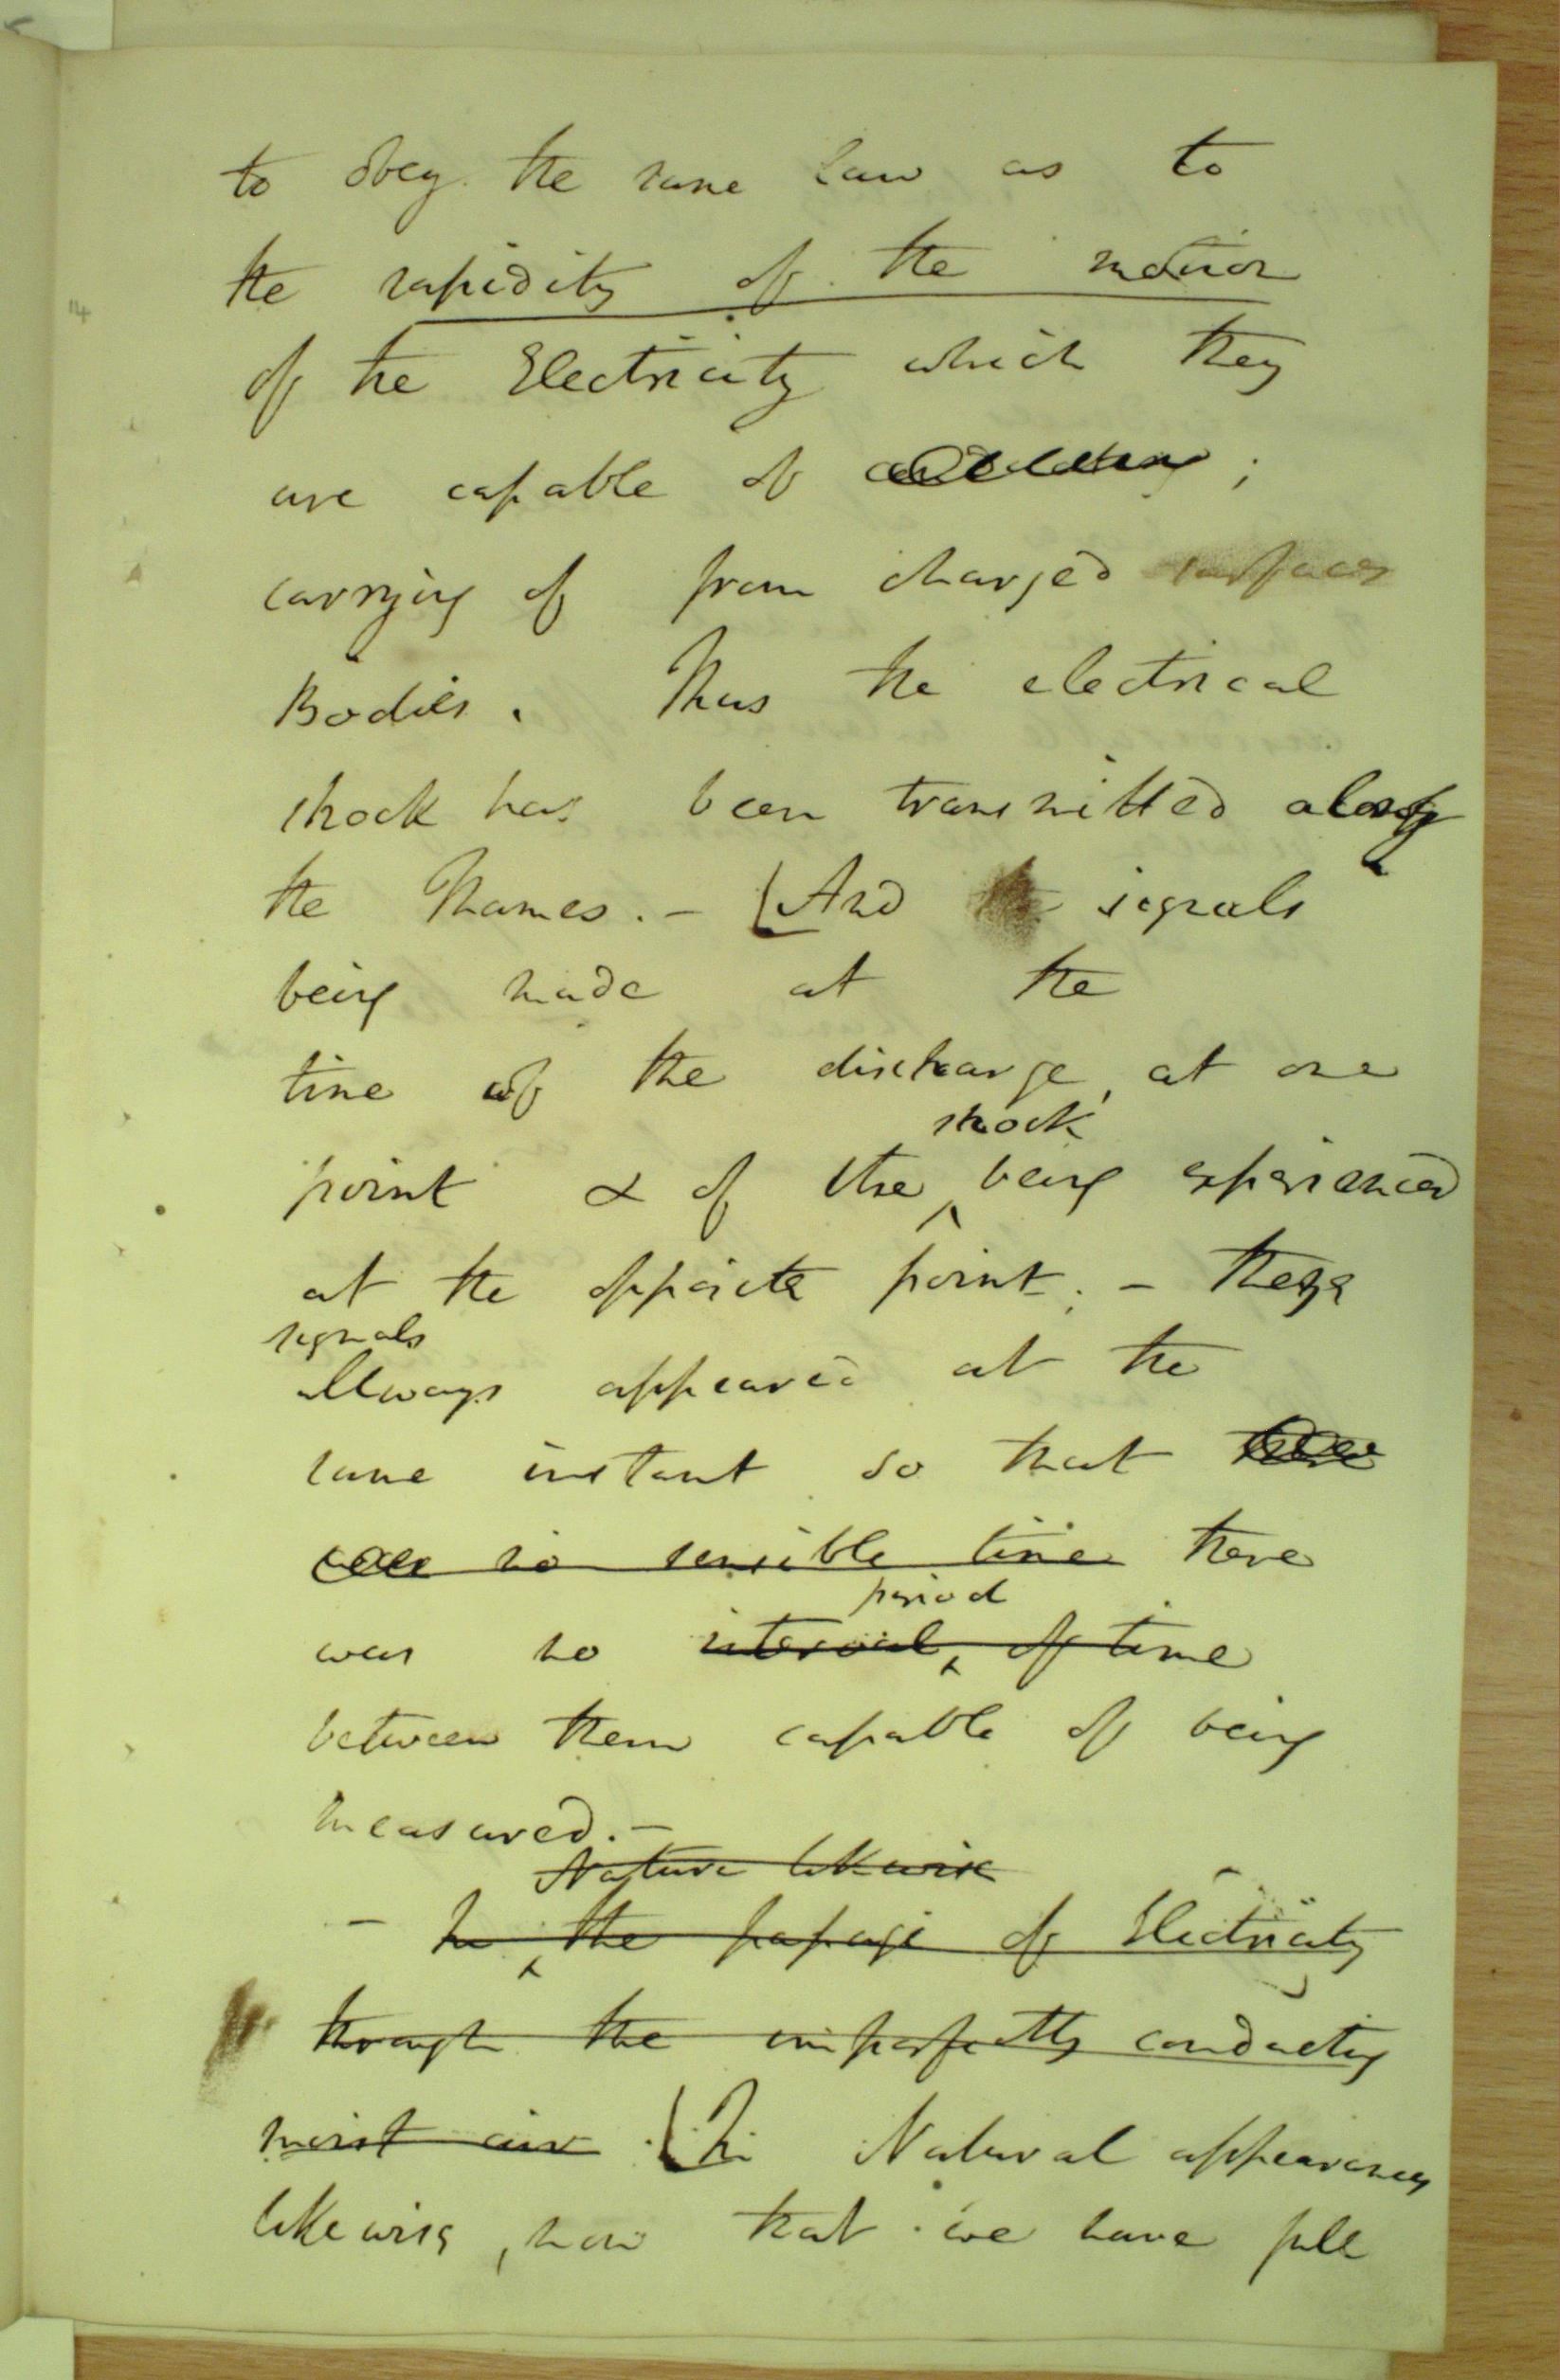 to obey the same law as to
the rapidity of the motion
of the Electricity which they
are capable of ;
carrying of from charged surfaces
Bodies. Thus the electrical
shock has been transmitted along
the Thames. - [And signals
being made at the
time of the discharge, at one
shock
point & of the being experienced
at the opposite point. - these
signals
allways appeared at the
same instant so that there
was no sensible time there
period
was no interval of time
between them capable of being
measured. -
Nature likewise
- In the passage of Electricity
through the imperfectly conducting
moist air . [In Natural appearances
likewise, now that we have full